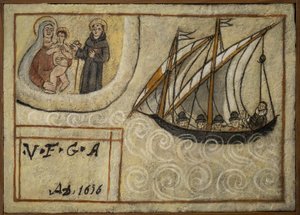 ·V·F·G·A
AD. 1636